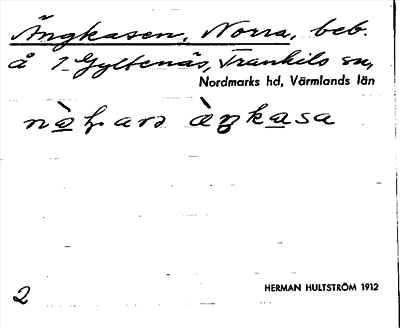 Ängkasen, Norra, beb.
å 1 Gyltenäs, Trankils sn,
Nordmarks hd, Värmlands län
àŋkasa
2
HERMAN HULTSTRÖM 1912